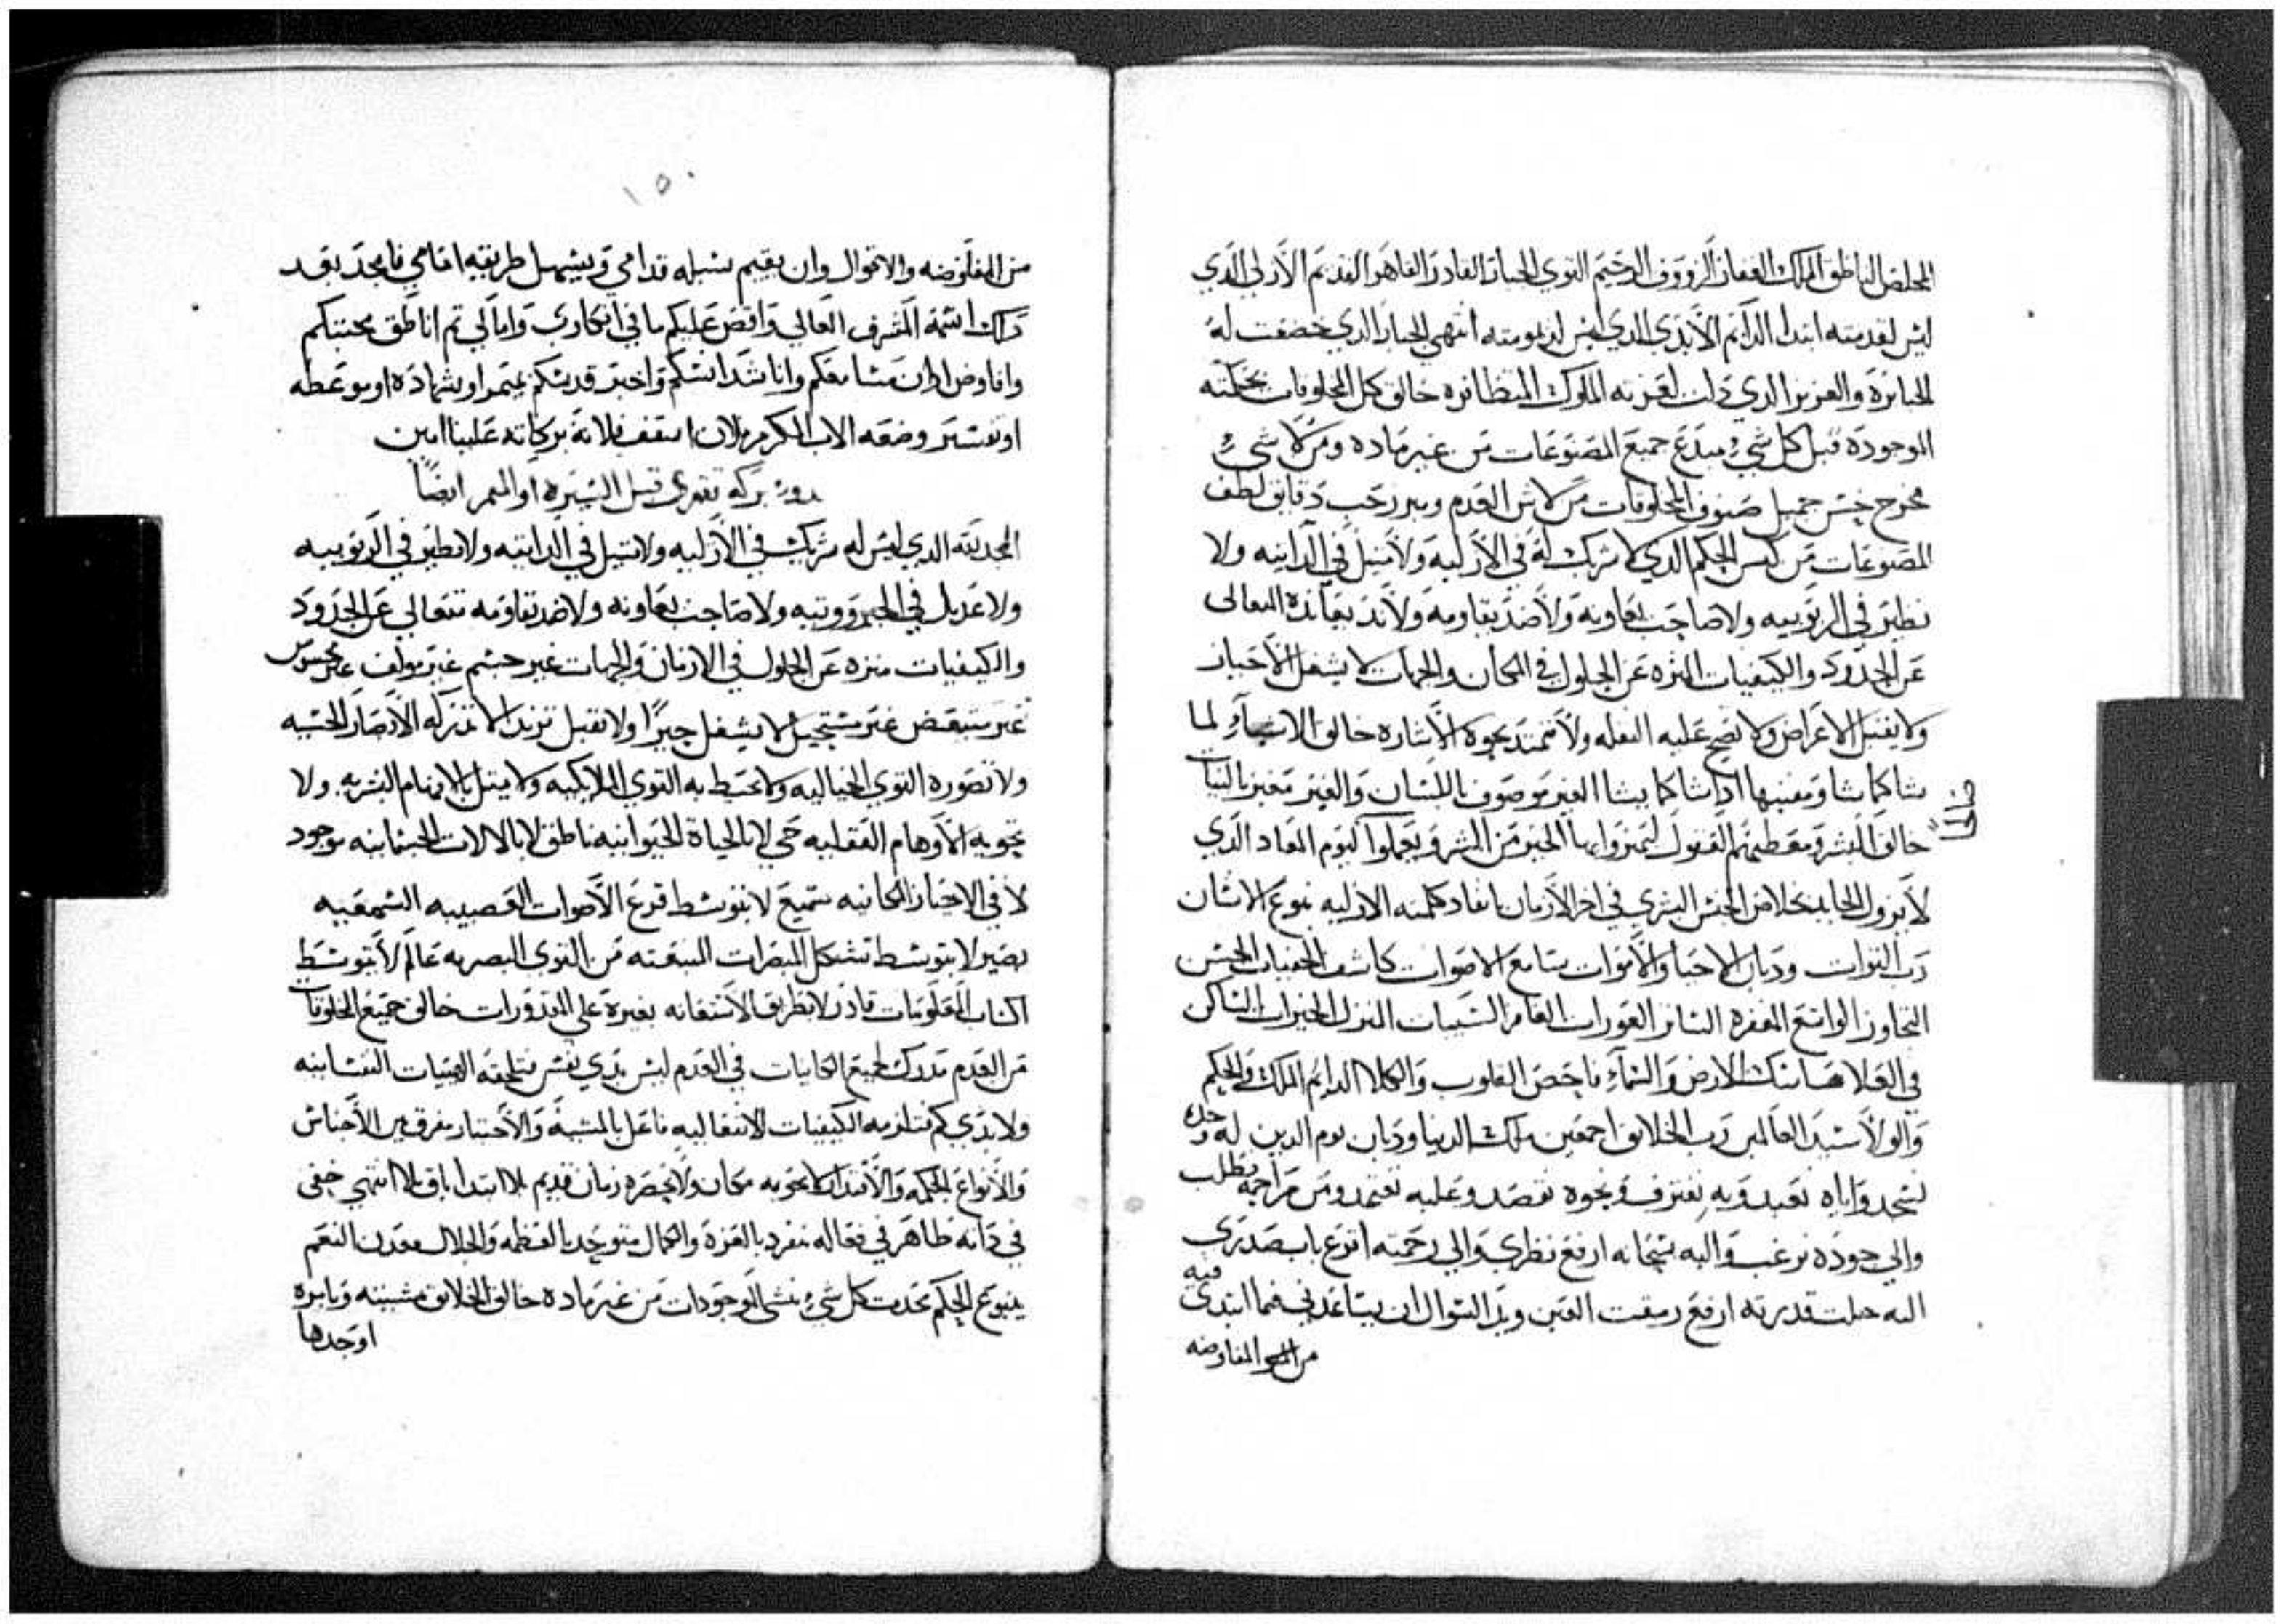 المخلص الناطق الملك الغفار الرووف الرحيم القوي الجبار القادر القاهر القديم الازلي الذي
ليس لقدمته ابتدا الدايم الابدي الذي ليس لديمومته انتهي الجبار الذي خضعت له
الجبابرة والعزيز الدي دلت لعزته الملوك المتظافره خالق كل المخلوقات بحكمته
الموجودة قبل كل شي مبدع جميع المصنوعات من غير ماده ومن لا شي
مخرج جميل صنوف المخلوقات من العدم ومبرز دقايق لطف
المصنوعات من الحكم الدي لا شريك له في الازليه ولا مثيل في الداتيه ولا
نظير في الربوبيه ولا صاحب يعاونه ولا ضد يقاومه ولا ند يعانده المتعالى
عن الحدود والكيفيات المنزه عن الحلول في المكان والجهات لا يشغل الاحياز
ولا يقبل الاعراض ولا تصح عليه النقله ولا تمتد نحوه الاشاره خالق الاشيآء لما
شا كما شا ومفنيها ادا شا كما يشا الغير موصوف باللسان والغير متغير بالنيات
خالق البشر ومعطيهم العقول ليميزوا بها الخير من الشر ويعملوا ليوم المعاد الدي
لا يزول بخلاص الجنس البشري في اخر الازمان بانفاد كلمته الازليه بنوع الانسان
رب القوات وديان الاحيا والاموات سامع الاصوات كاشف الخفيات الحسن
التجاوز الواسع المغفره الساتر العورات الغافر السيات المنزل الخيرات الساكن
في العلا ماسك الارض والسمآء فاحص القلوب والكلا الدايم الملك والحكم
والولا سيد العالمين رب الخلايق اجمعين ملك الدنيا وديان يوم الدين له وحده
نسجد واياه نعبد وبه نعترف ونحوه نقصد وعليه نعتمد ومن مراحمه نطلب
والي جوده نرغب واليه سبحانه ارفع نظري والي رحمته اقرع باب صدري
اليه جلت قدرته ارفع رمقت العين ويد السوال ان يساعدني فيما ابتدي فيه
من المفاوضه
١٥٠
من المفاوضه والاقوال وان يقيم سبله قدامي ويسهل طريقه امامي فامجد بعد
داك اسمه الشرف العالي واقص عليكم ما في افكاري وامالي تم اناطق محبتكم
وافاوض ادان مسامعكم واناشد انسكم واخبر قدسكم بميمر او بشهادة او موعظه
او تفسير وضعه الاب المكرم فلان اسقف فلانة بركاته علينا امين
بركه تقرى قبل السيره او الميمر ايضا
المجد لله الدي ليس له شريك في الازليه ولا مثيل في الداتيه ولا نظير في الربوبيه
ولا عديل في الجبرووتيه ولا صاحب يعاونه ولا ضد يقاومه تتعالي عن الحدود
والكيفيات منزه عن الحلول في الازمان والجهات غير جسم غير مولف غير محسوس
غير متبعض غير مستحيل لا يشغل حيزا ولا يقبل تزيدا لا تدركه الابصار الحسيه
ولا تصوره القوي الخياليه ولا تحيط به القوي الملايكيه ولا يمتل بالافهام البشريه ولا
تحويه الاوهام العقليه حي لا بالحياة الحيوانيه ناطق لا بالالات الجسمانيه موجود
لا في الاحياز المكانيه سميع لا بتوسط قرع الاصوات العصبيه السمعيه
بصير لا بتوسط تشكل المبصرات المنبعته من القوى البصريه عالم لا بتوسط
اكتساب المعلومات قادر لا بطريق الاستعانه بغيرة على المقدورات خالق جميع المخلوقات
من العدم مدرك لجميع الكاينات في العدم ليس بدي نفس فتلحقه الهيات النفسانيه
ولا بدي كم فتلزمه الكيفيات الانتقاليه فاعل بالمشية والاختيار مفرق بين الاجناس
والانواع بالحكمه والاقتدار لا يحويه مكان ولا يحصره زمان قديم بلا ابتدا باق بلا انتهي خفى
في داته ظاهر في فعاله منفرد بالعزة والكمال متوحد بالعظمه والجلال معدن النعم
ينبوع الحكم محدت كل شي منشي الموجودات من غير ماده خالق الخلايق بمشيته وبامره
اوجدها